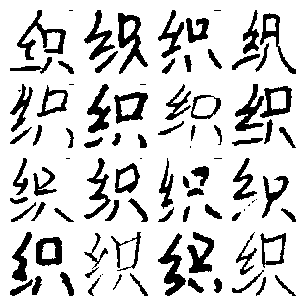 织织织织
织织织织
织织织织
织织织织